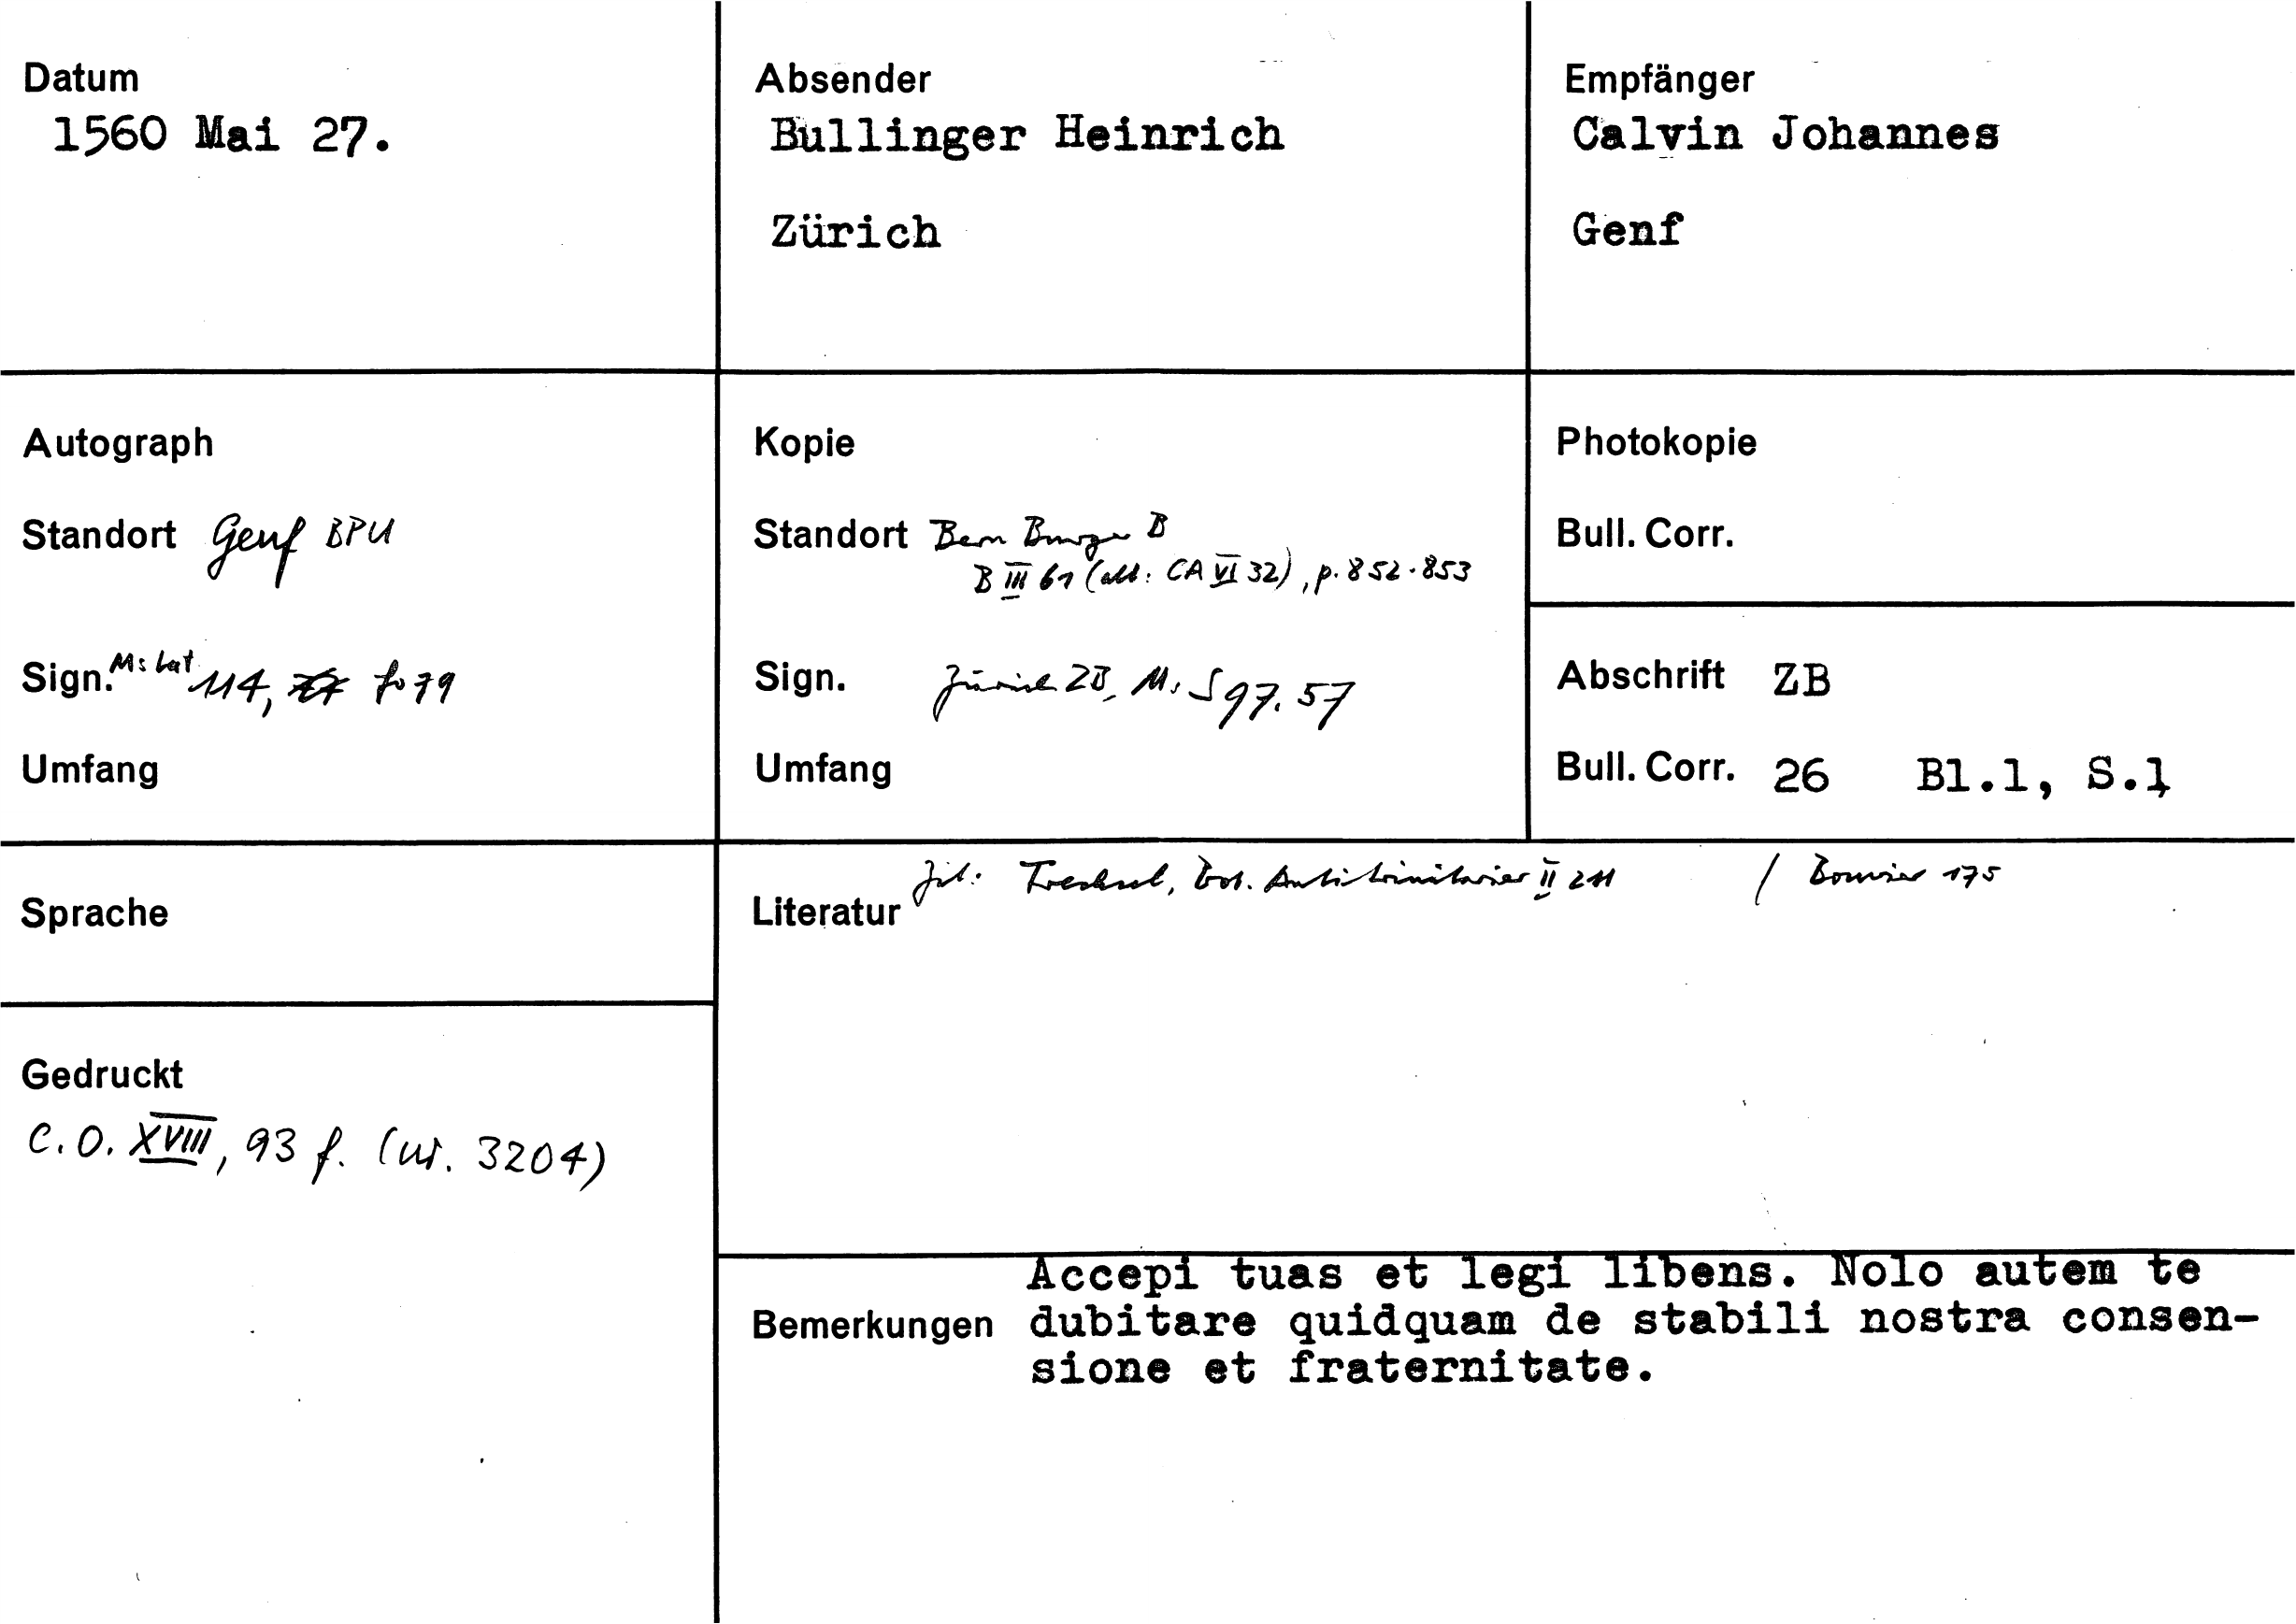 Datum
1560 Mai 27.
Absender
Bullinger Heinrich
Zürich
Empfänger
Calvin Johannes
Genf
Autograph
Standort Genf BPU
Sign. Ms Lat 114, fo 79
Umfang
Kopie
Standort Bern Burger B
B III 61 (alt: CA VI 32), p. 852-853
Sign. Zürich ZB, Ms S 97. 57
Umfang
Photokopie
Bull. Corr.
Abschrift ZB
Bull. Corr. 26 Bl.1, S.1
Sprache
Literatur Zit: Trechsel, Antitrinitarier II 211 / Bouvier 175
Gedruckt
C.O. XVIII, 93 f. (nr. 3204)
Accepi tuas et legi libens. Nolo autem te
Bemerkungen dubitare quidquam de stabili nostra consen-
sione et fraternitate.